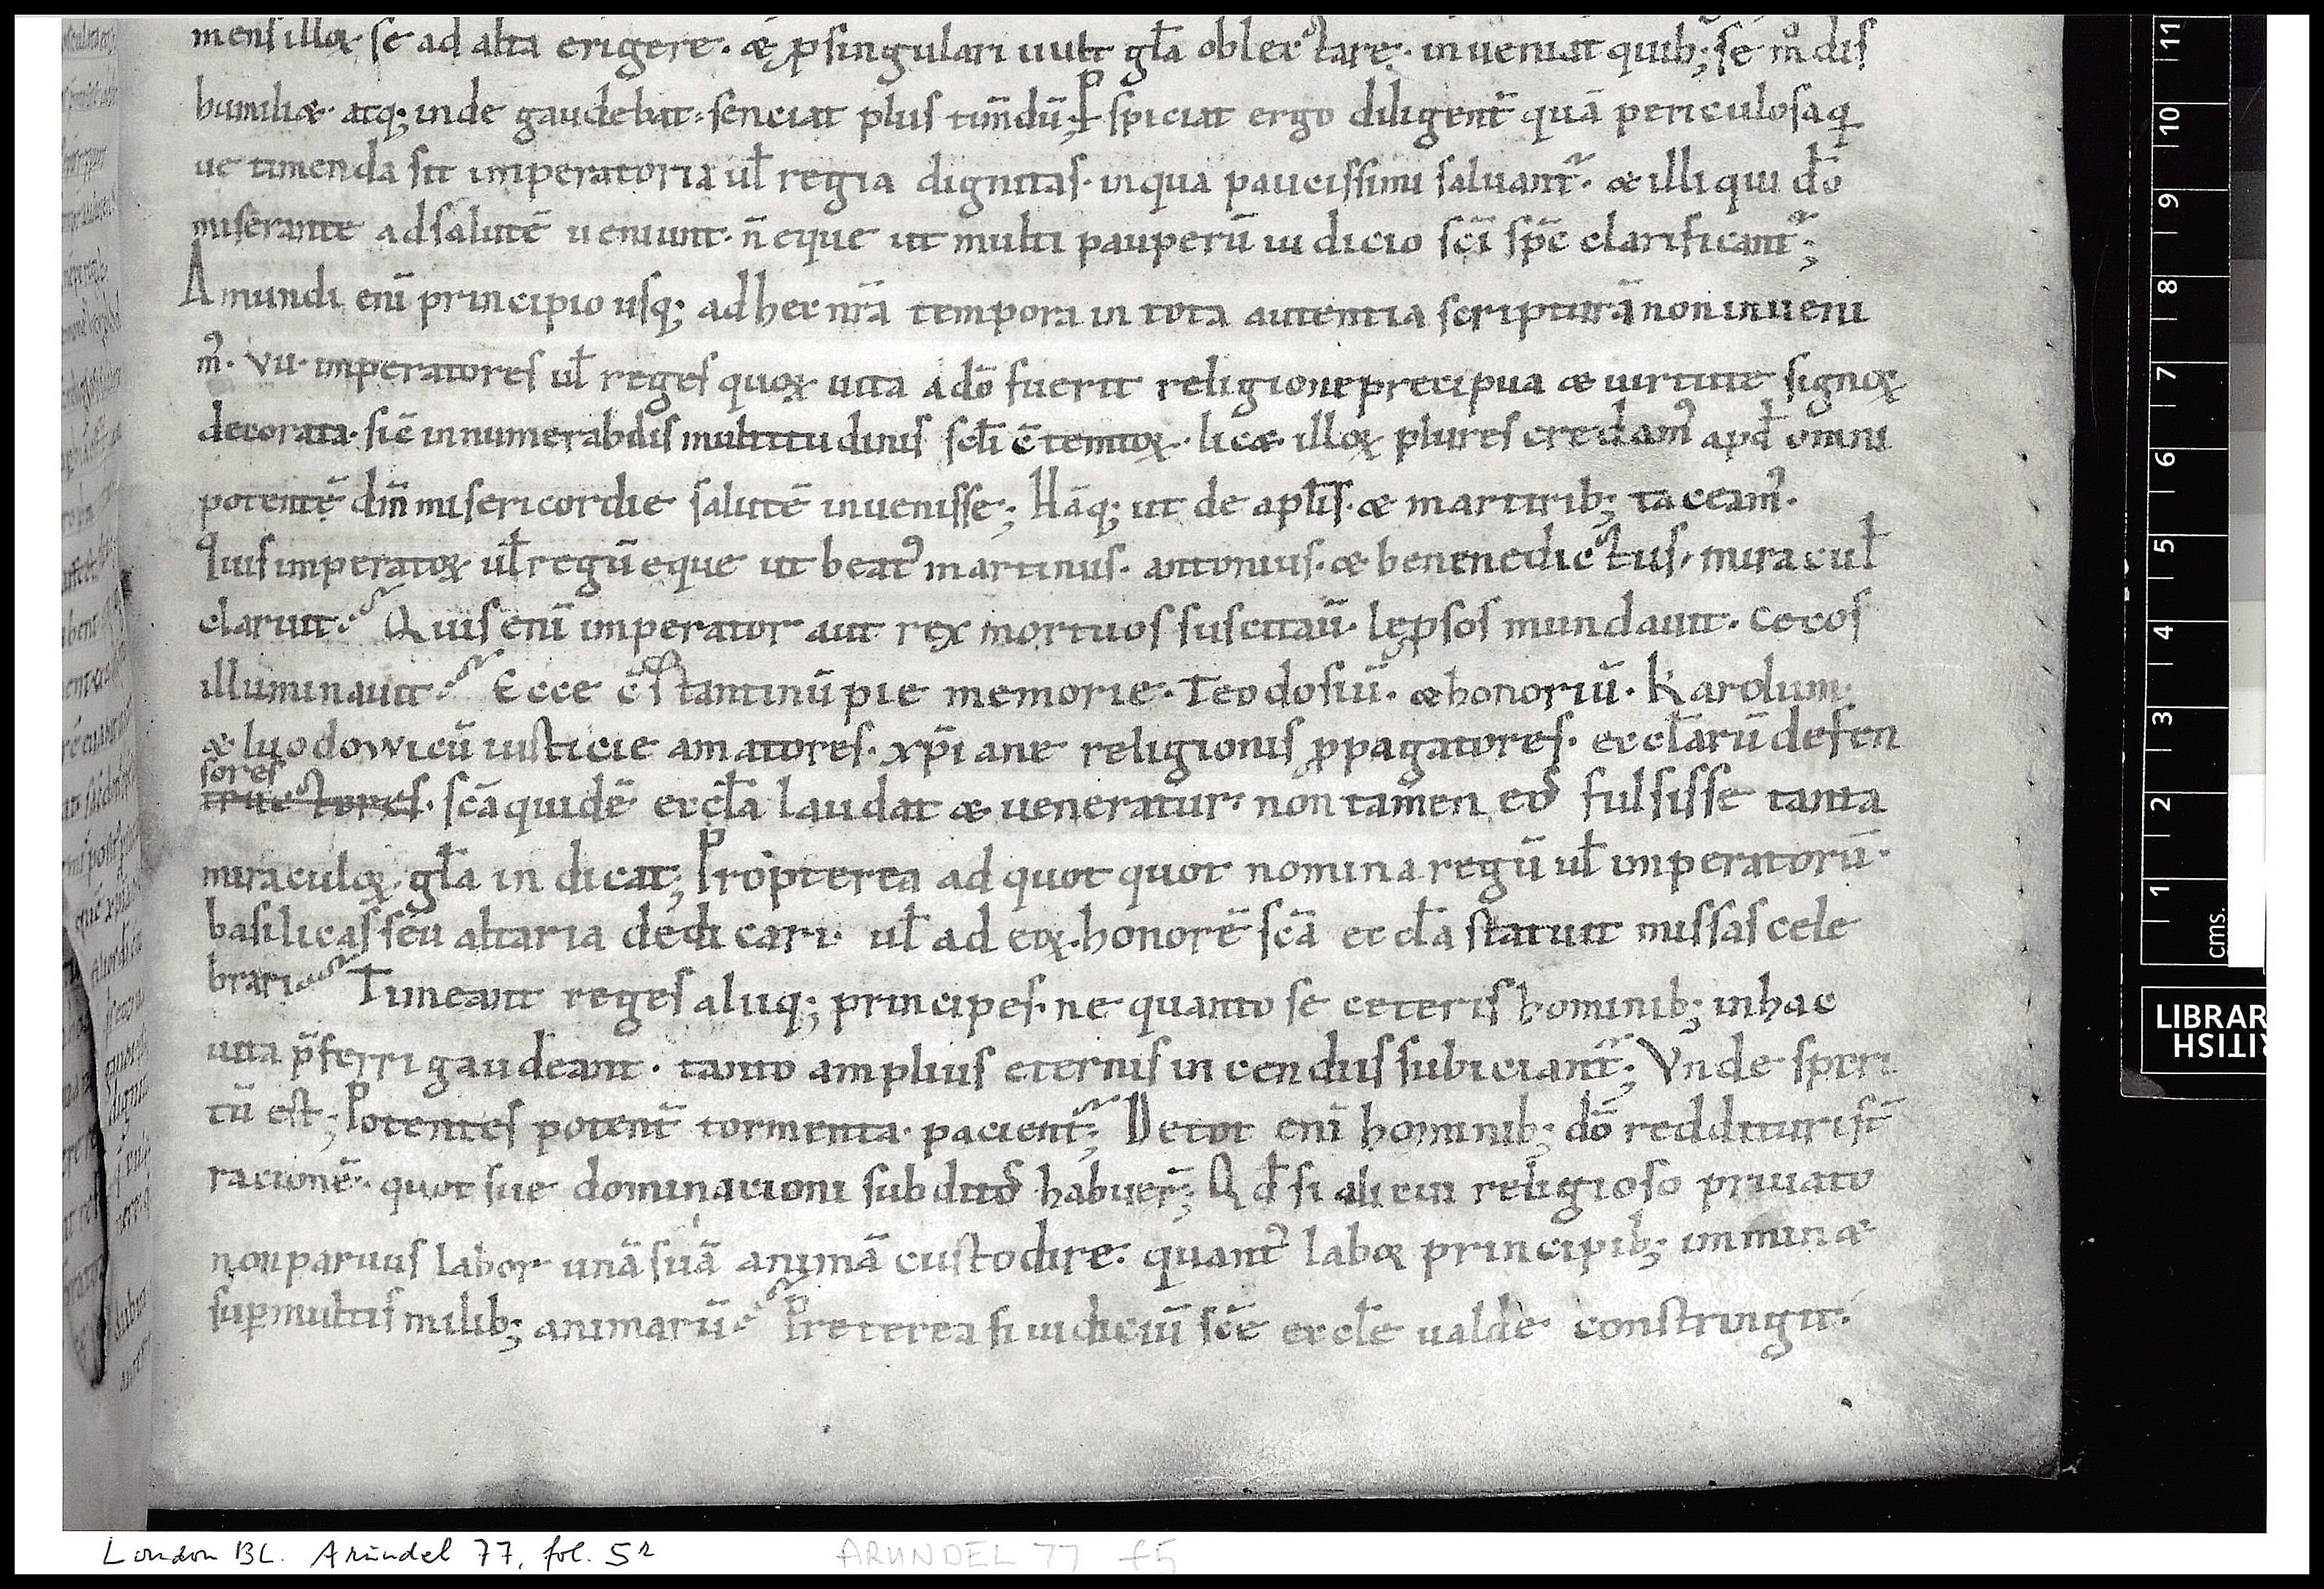 mens illoꝝ se ad alta erigere. & ꝓ singulari uult gl̄a oblectare. inueniat quib; se mͦdis
humili&. atq; inde gaudebat. senciat plus tim̄dū; Pspiciat ergo diligent̄ quā periculosa q̨
ue timenda sit imperatoria ul̄ regia dignitas. in qua paucissimi saluant᷑. & illi qui dō
miserante ad salutē ueniunt. n̄ eque ut multi pauperū iudicio sc̄i sp̄c clarificant᷑;
A mundi enī principio usq; ad hec nr̄a tempora in tota autentia scripturā non inueni
m᷒. vii. imperatores ul̄ reges quoꝝ uita a dō fuerit religione precipua & uirtute signoꝝ
decorata. sic̄ innumerabilis multitudinis scl̄i c̄temtoꝝ. lic&. illoꝝ plures credam᷒ apd̄ omni
potentē dn̄m misericordie salutē inuenisse; Nāq; ut de apl̄is. & martirib; taceam᷒.
Quis imperatoꝝ ul̄ regū eque ut beat᷒ martinus. antonius. & benenedictus. miracul̄
claruit? Quis enī imperator aut rex mortuos suscitau̅. lepsos mundauit. cecos
illuminauit? Ecce c̄stantinū pie memorie. Teodosiū. & honoriū. Karolum.
& luodowicū iusticie amatores. xp̄iane religionis ꝓpagatores. eccl̄arū defen
sores
tructores. sc̄a quidē eccl̄a laudat & ueneratur. non tamen eos fulsisse tanta
miraculoꝝ. gl̄a indicat; Propterea ad quot quot nomina regū ul̄ imperatorū.
basilicas seu altaria dedicari. ul̄ ad eoꝝ. honorē sc̄a eccl̄a statuit missas cele
brari? Timeant reges aliiq; principes. ne quanto se ceteris hominib; in hac
uita p̄ferri gaudeant. tanto amplius eternis incendiis subiciant᷑; Vnde scri
tū est; Potentes potent̄ tormenta. pacient᷑; De tot enī hominib; dō reddituri st̄
racionē. quot sue dominacioni subditos habuer̄; Qd̄ si alicui religioso priuato
non paruus labor unā suā animā custodire. quant᷒ laboꝝ principib; immin&
sup multis milib; animarū? Preterea si iudiciū sc̄e eccl̄e ualde constringit.
London BL. Arundel 77, fol. 5r
ARUNDEL 77 f5
1 2 3 4 5 6 7 8 9 10 11
cms.
LIBRAR
RITISH